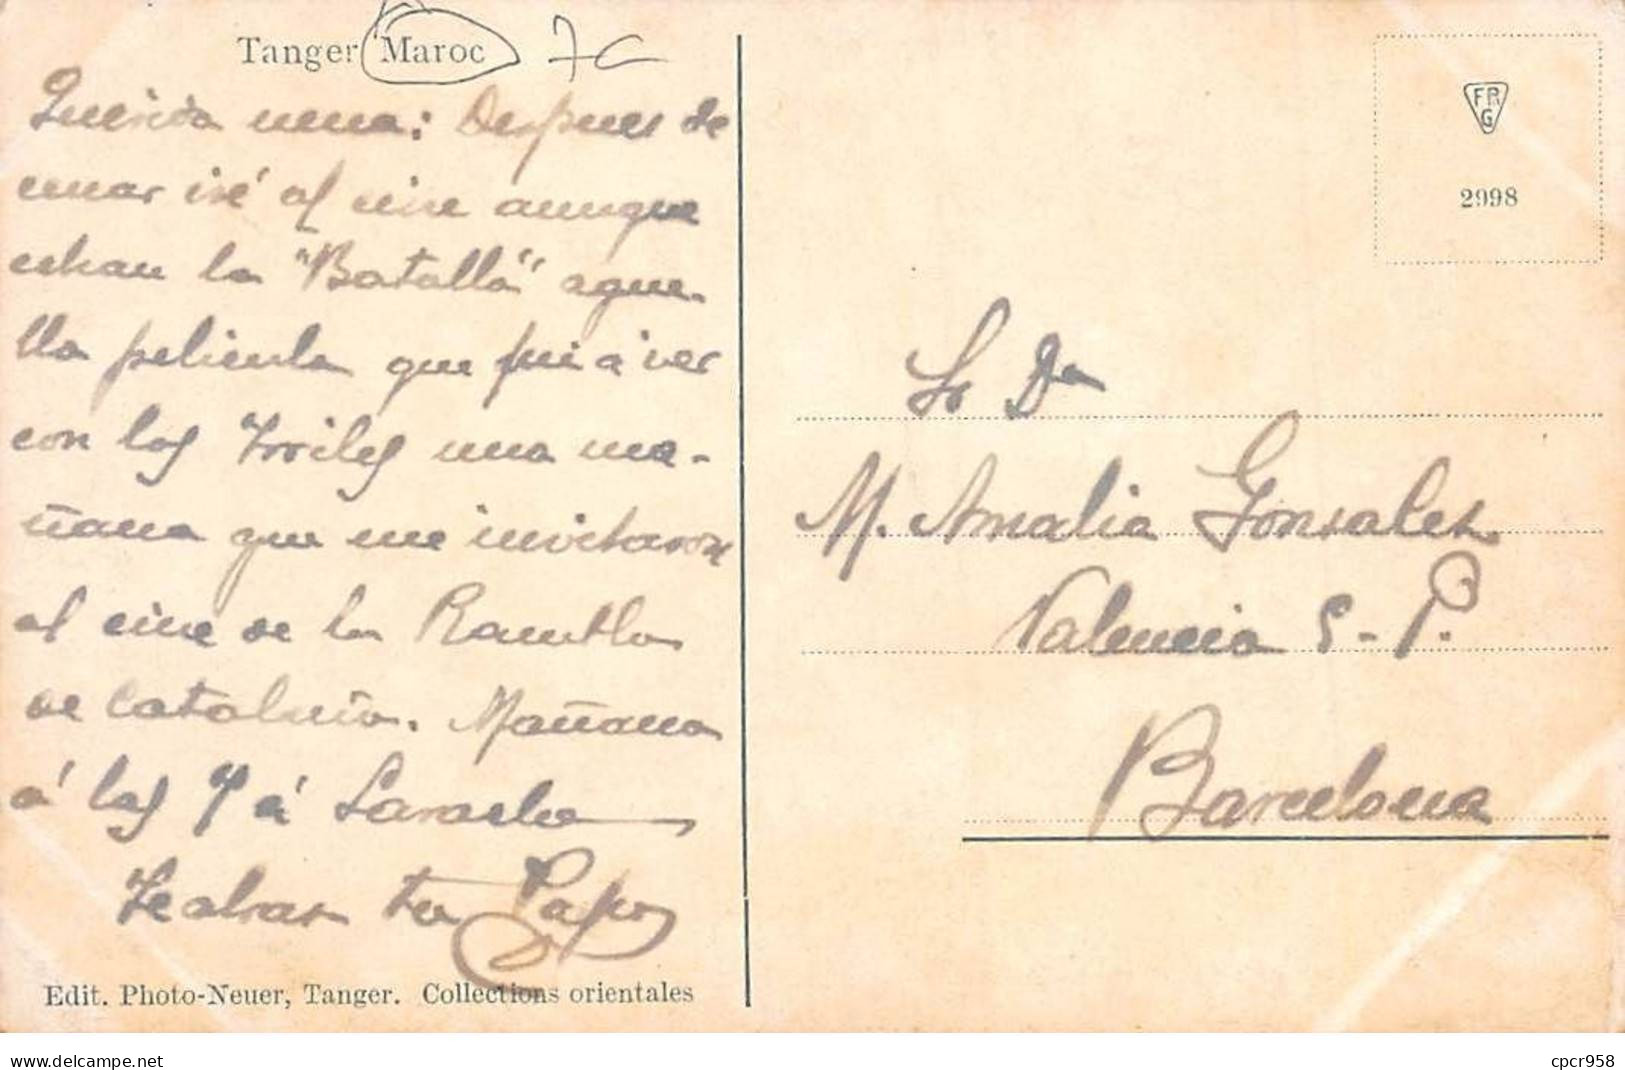 Tanger Maroc 7C
Querida nena: Despues de
cenar iré al cine aunque
echan la "Batalla" aque-
lla pelicula que fui á ver
con los una ma-
ñana que me invitaron
al cine de la Rambla
de Cataluña. Mañana
á las 7 á Larache
Te abraza tu Papa
Edit. Photo-Neuer, Tanger. Collections orientales
FR
G
2998
Sr Da
M. Amalia Gonsalez
Valencia 5-P.
Barcelona
www.delcampe.net
cpcr958